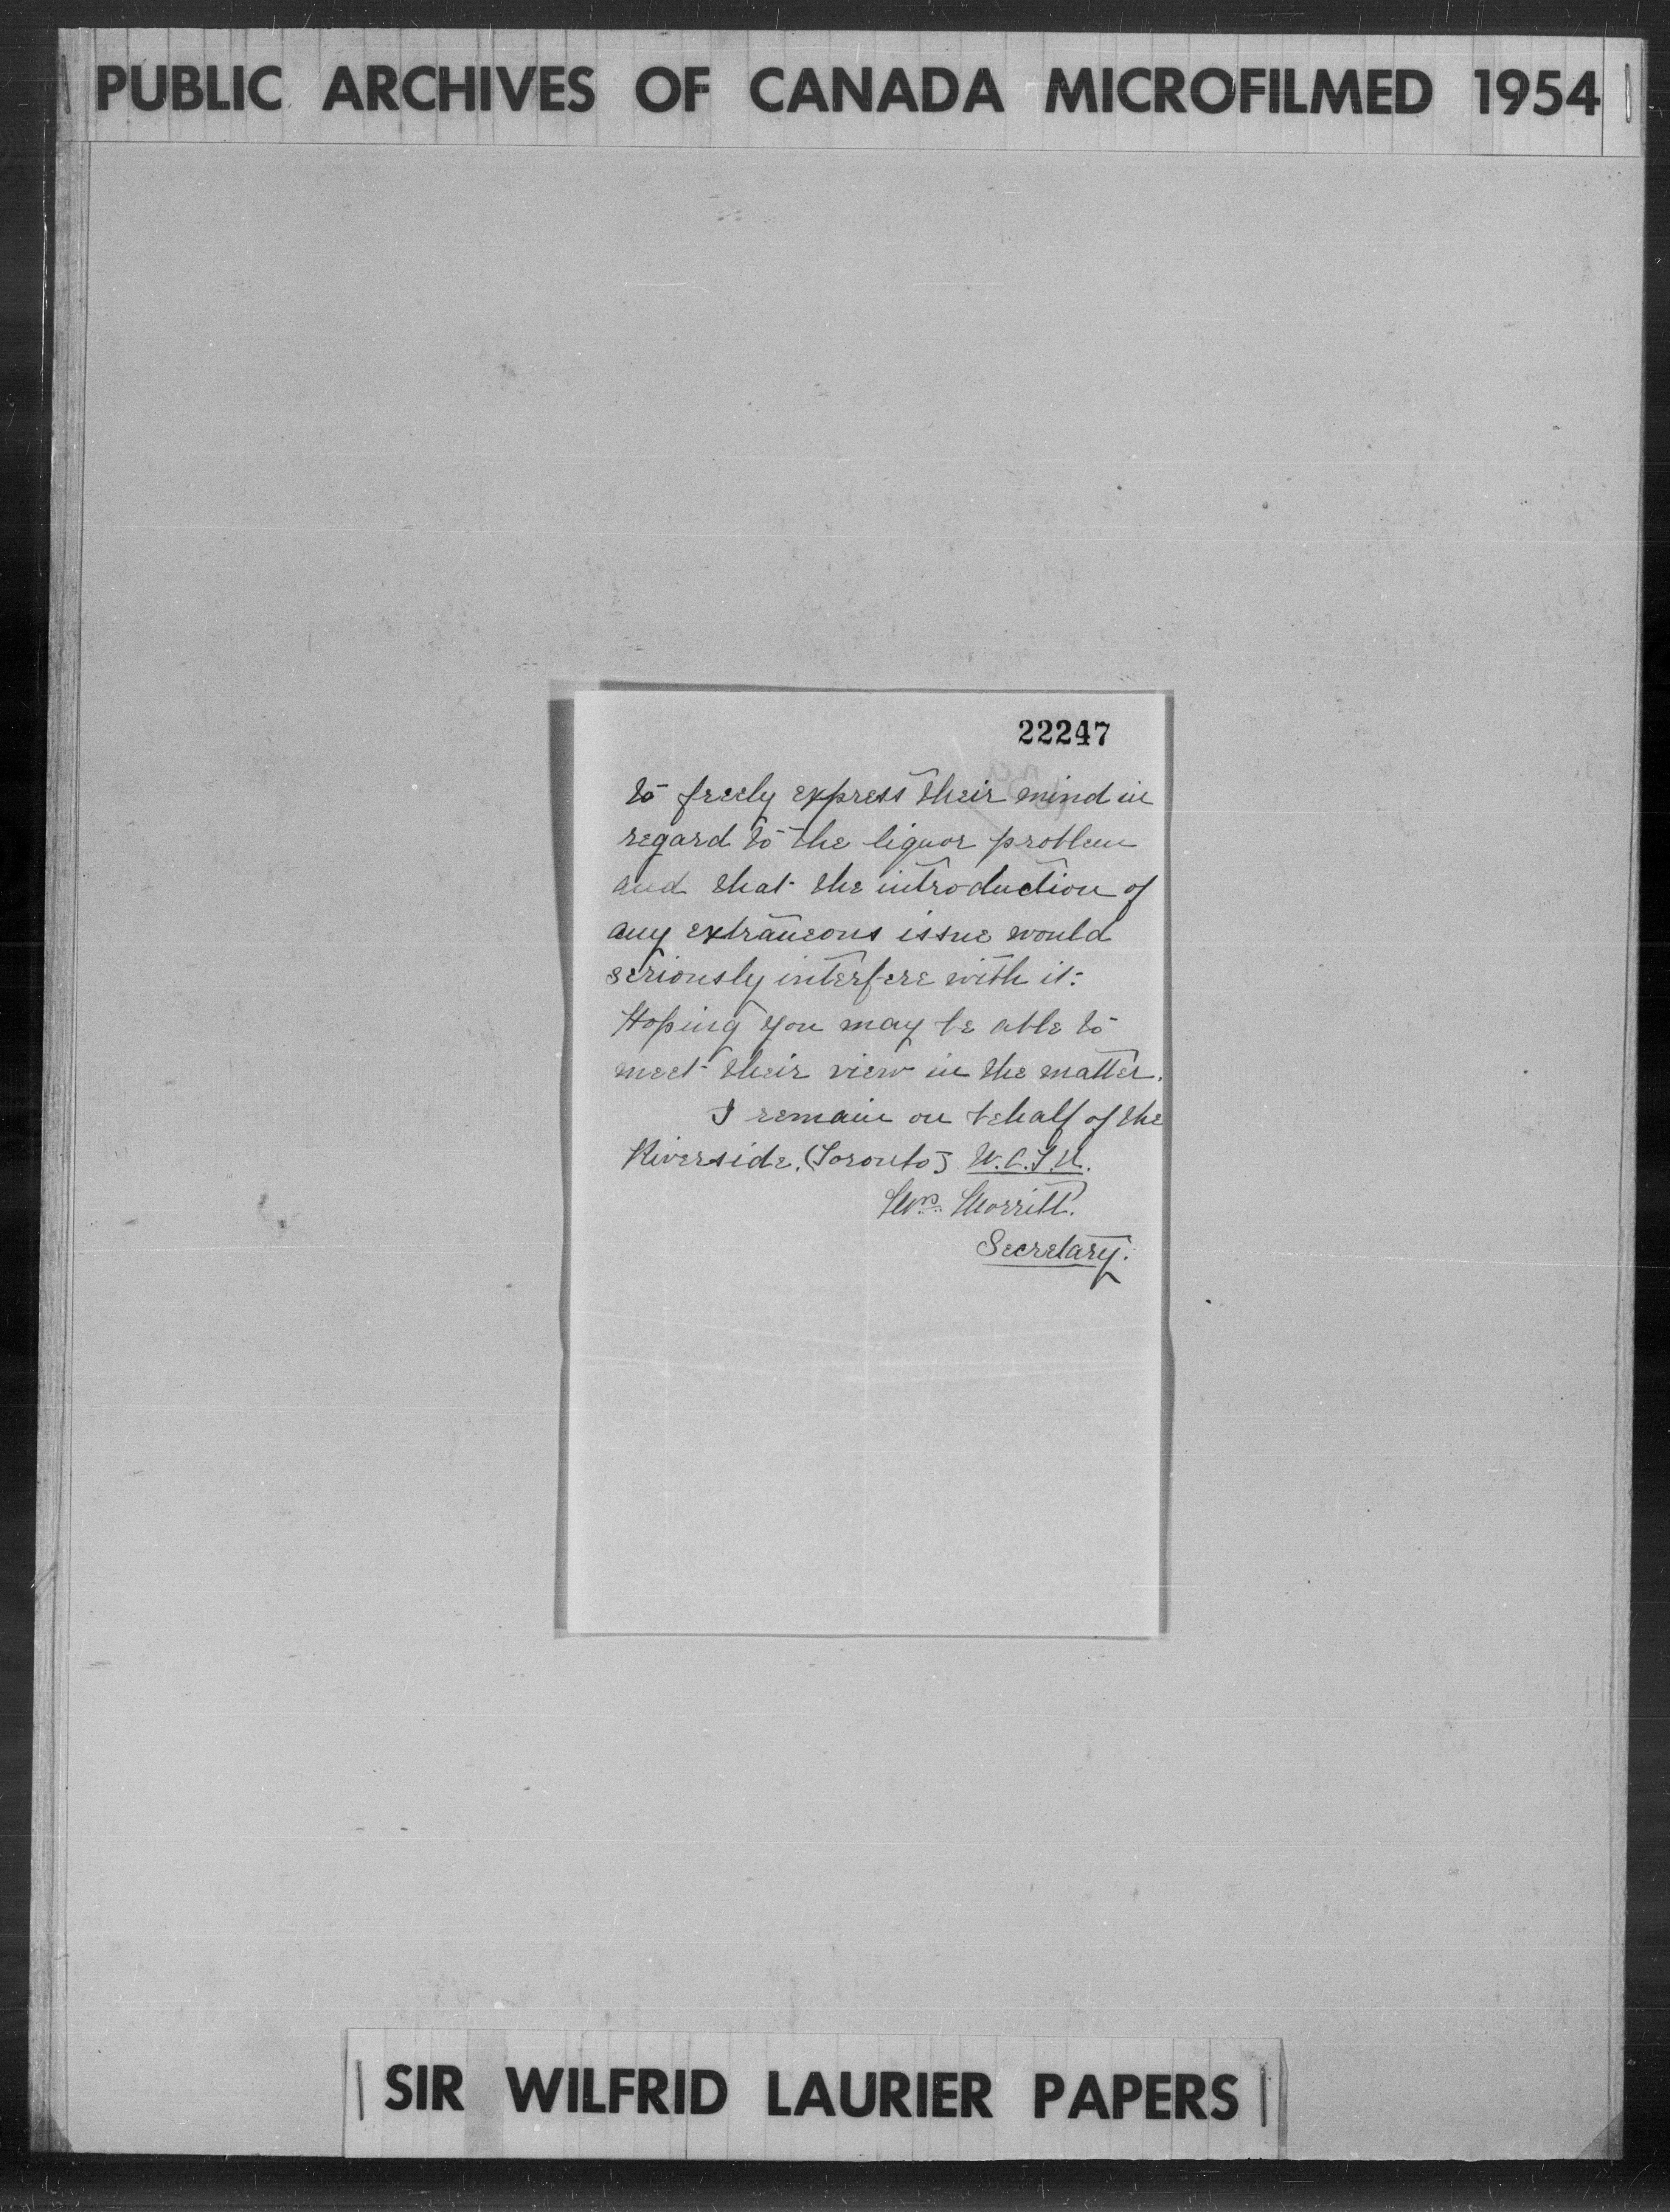 PUBLIC ARCHIVES OF CANADA MICROFILMED 1954
22247
to freely express their mind in
regard to the liquor problem
and that the introduction of
any extraneous issue would
seriously interfere with it.
Hoping you may be able to
meet their view in the matter.
I remain on behalf of the
Riverside. (Toronto) W.C.T.U.
Mrs. Morritt.
Secretary.
SIR WILFRID LAURIER PAPERS